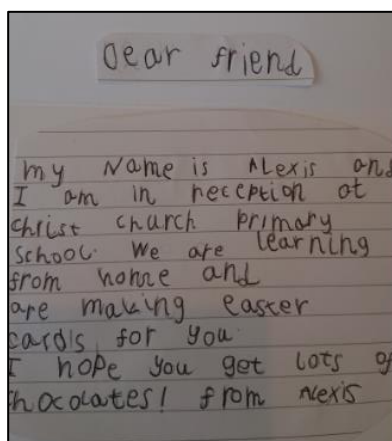 Dear friend
my Name is Alexis and
I am in reception at
christ church primary
school. We are learning
from home and
are making easter
cards for you.
I hope you get lots of
hocolates! from Alexis